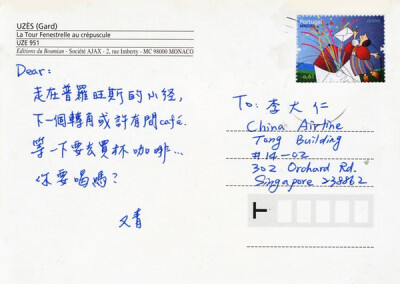 UZÈS (Gard)
La Tour Fenestrelle au crépuscule
UZE 951
Editions du Boumian - Société AJAX - 2, rue Imberty - MC 98000 MONACO
Portugal
0,61
Dear:
走在普羅旺斯的小徑,
下一個轉角或許有間café.
等一下要去買杯咖啡...
你要喝嗎?
文青
To: 李大仁
China Airline
Tong Building
#14-02
302 Orchard Rd.
Singapore 238862